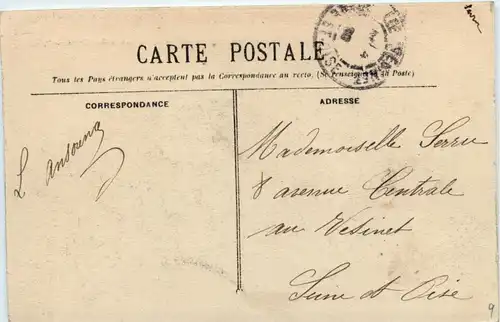 CARTE POSTALE
Tous les Pays étrangers n'acceptent pas la Correspondance au recto, (Se renseigner à la Poste)
CORRESPONDANCE
ADRESSE
Mademoiselle Serru
8 avenue Centrale
au Vesinet
Seine et Oise
L
9